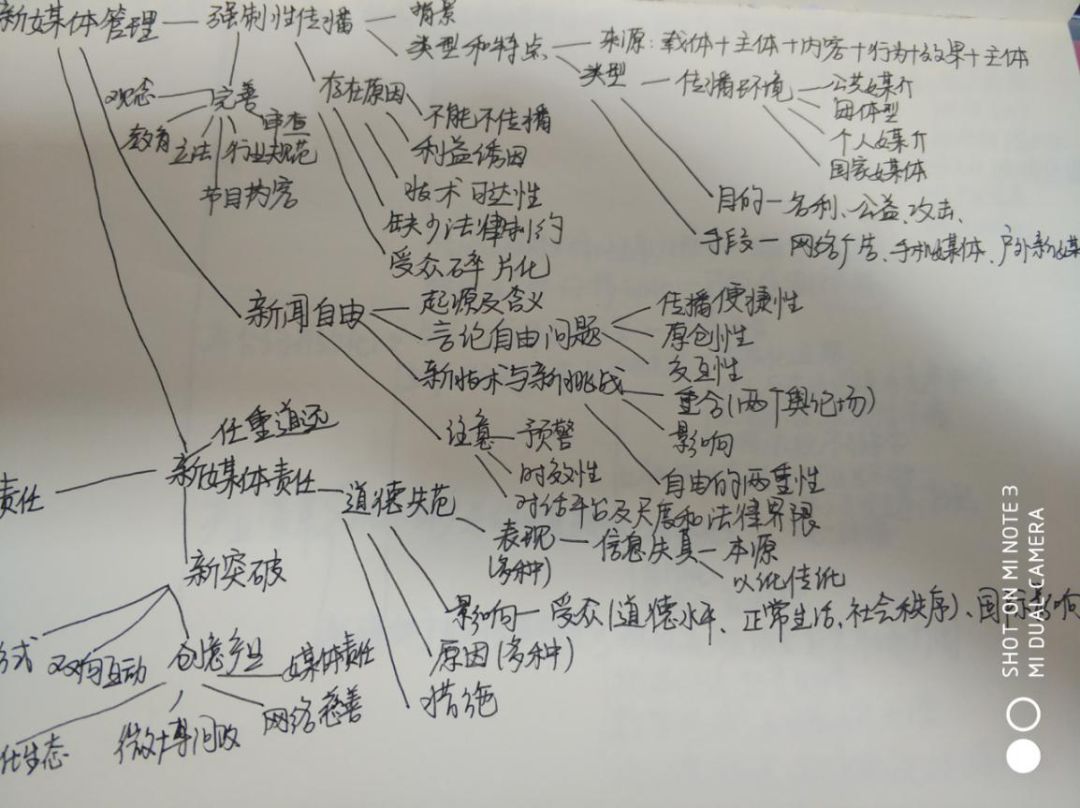 新媒体管理 强制性传播 背景
类型和特点 来源：载体+主体+内容+行为+效果+主体
类型 传播环境 公共媒介
母体型
个人媒介
国家媒体
观念 完善 存在原因
教育 立法 行业规范 审查
节目内容
不能不传播
利益诱因
技术可达性
缺少法律制约
受众碎片化
目的 名利、公益、攻击、
手段 网络广告、手机媒体、户外新媒
新闻自由 起源及含义
言论自由问题 传播便捷性
原创性
交互性
新技术与新挑战 重合(两个舆论场)
影响
自由的两重性
注意 预警
时效性
对话平台及尺度和法律界限
任重道远
责任 新媒体责任 道德失范
表现 信息失真 本源
(多种) 以讹传讹
影响 受众(道德水平、正常生活、社会秩序)、国家影响
原因(多种)
措施
新突破
方式 双向互动 创意产业 媒体责任
网络慈善
微博问政
生态
SHOT ON MI NOTE 3
MI DUAL CAMERA